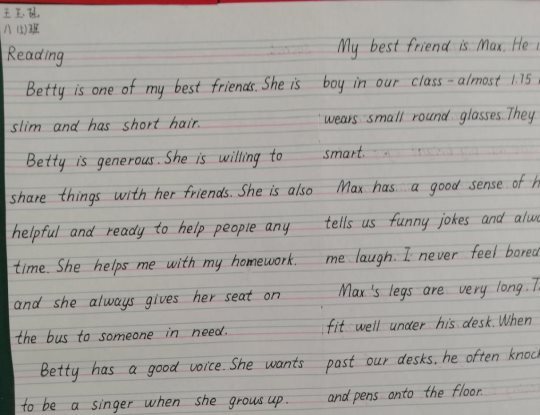 王玉
八(1)班
Reading
Betty is one of my best friends. She is
slim and has short hair.
Betty is generous. She is willing to
share things with her friends. She is also
helpful and ready to help people any
time. She helps me with my homework.
and she always gives her seat on
the bus to someone in need.
Betty has a good voice. She wants
to be a singer when she grows up.
My best friend is Max. He
boy in our class - almost 1.75
wears small round glasses. They
smart.
Max has a good sense of
tells us funny jokes and
me laugh. I never feel bored
Max's legs are very long.
fit well under his desk. When
past our desks, he often
and pens onto the floor.